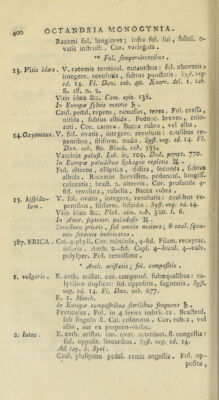 400 OCTANDRIA MONOGYNIA.
Racemi fol. longiores; infra fol. sui, follol. o-
vatis instructi. Cor. variegata.
** Fol. sempervirentibus.
13. Vitis idæa. V. racemis terminal. nutantibus: fol. obovatis,
integerr. revolutis, subtus punctatis. Syst. veg.
ed. 14. Fl. Dan. tab. 40. Knorr. del. I. tab.
S. 18. n. 2.
Vitis idæa &c. Cam. epit. 136.
In Europæ silvis
Caul. pedal. repens, ramosus, teres. Fol. crassa,
subtus albida. Pedunc. breves, colo-
rati. Cor. carnea. Bacca rubra, vel alba.
14. Oxycoccus. V. fol. ovatis, integerr. revolutis: caulibus re-
pentibus, filiform. nudis. Syst. veg. ed. 14. Fl.
Dan. tab. 80. Black. tab. 593.
Vaccinia palust. Lob. ic. 109. Dod. pempt. 770.
In Europæ paludibus Sphagno repletis
Fol. alterna, elliptica, distita, secunda, subtus
albida. Racemus brevissim. peduncul. longiss.
coloratis; bract. 2. alternis. Cor. profunde 4-
fid. revoluta, rubella. Bacca rubra.
15. hispidu-
lum. V. fol. ovatis, integerr. revolutis: caulibus re-
pentibus, filiform. hispidis. Syst. veg. ed. 14.
Vitis idæa &c. Pluk. alm. tab. 320. f. 6.
In Amer. septentr. paludosis
587. ERICA. Cal. 4-phyll. Cor.
Anth. 2-fid. Caps. 4-locul. 4-valv.
polysper. Fol. tenuissima.
* Anth. aristatis; fol. oppositis.
1. vulgaris. E. anth. aristat. cor. campanul. subæqualibus: ca-
lycibus duplicat: fol. oppositis, sagittatis. Syst.
veg. ed. 14. Fl. Dan. tab. 677.
E. I. Match.
In Europæ campestribus sterilibus frequens
alba, aut ex purpureo-violac.
2. lutea. E. anth. aristat. cor. ovat. acuminat. fl. congestis:
fol. opposit. linearibus. Syst. veg. ed. 14.
Ad cap. b. Spei
Caul. pedal. ramis angustis. Fol. op-
posita,